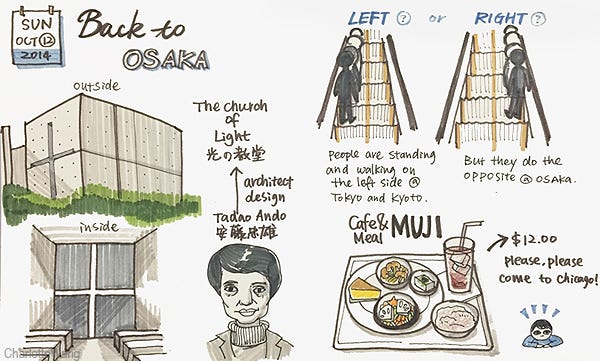 SUN
OCT 12
2014
Back to
OSAKA
outside
The church
of
Light
光の教堂
architect
design
Tadao Ando
安藤忠雄
inside
LEFT ? or RIGHT ?
People are standing
and walking on
the left side @
Tokyo and Kyoto.
But they do the
opposite @ OSAKA.
Cafe &
Meal MUJI
$12.00
Please, please
come to Chicago!